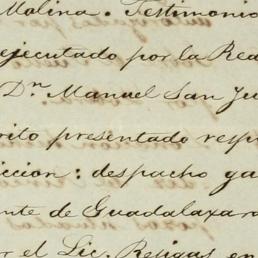 Molina. Testimonio
ejecutado por la Rea
Dn. Manuel San Ju
rito presentado resp
iccion: despacho ga
nte de Guadalaxara
r el Lic. Regigas en